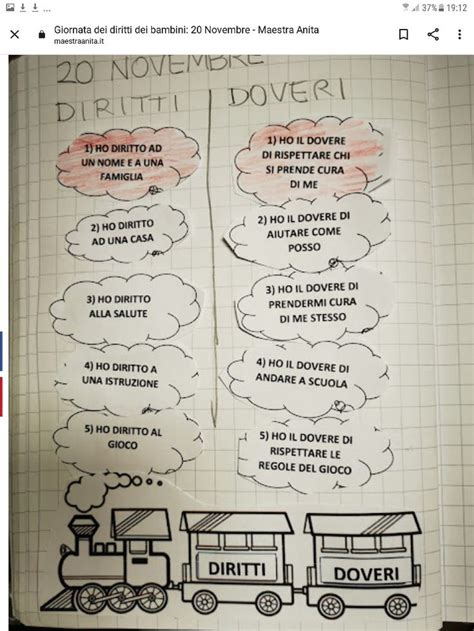 37% 19:12
Giornata dei diritti dei bambini: 20 Novembre - Maestra Anita
maestraanita.it
20 NOVEMBRE
DIRITTI
DOVERI
1) HO DIRITTO AD
UN NOME E A UNA
FAMIGLIA
1) HO IL DOVERE
DI RISPETTARE CHI
SI PRENDE CURA
DI ME
2) HO DIRITTO
AD UNA CASA
2) HO IL DOVERE DI
AIUTARE COME
POSSO
3) HO DIRITTO
ALLA SALUTE
3) HO IL DOVERE DI
PRENDERMI CURA
DI ME STESSO
4) HO DIRITTO A
UNA ISTRUZIONE
4) HO IL DOVERE DI
ANDARE A SCUOLA
5) HO DIRITTO AL
GIOCO
5) HO IL DOVERE DI
RISPETTARE LE
REGOLE DEL GIOCO
DIRITTI
DOVERI